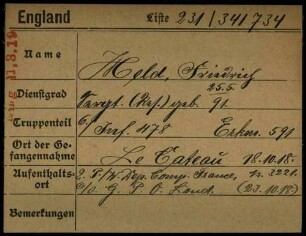 England Liste 231/341734
Name Held, Friedrich
25.5.
Dienstgrad Sergt. (Res.) geb. 91.
Truppenteil 6/ Inf. 478 Erkm. 591
Ort der Gefangennahme Le Cateau 18.10.18.
Aufenthaltsort P./W. Comp. France, 3221.
c/o G. P. O. Lond. (23.10.18.)
Bemerkungen